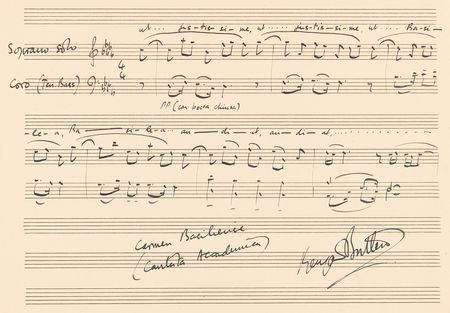 ut .... jus-tis-si-me, ut .... jus-tis-si-me, ut Ba-si-
Soprano solo
Coro (Ten. Bass)
PP (con bocca chiusa)
-le-a, Ba — si-le-a ... au-di-at, au-di-at, ..........
Carmen Basiliense
(Cantata Academica)
Benjamin Britten